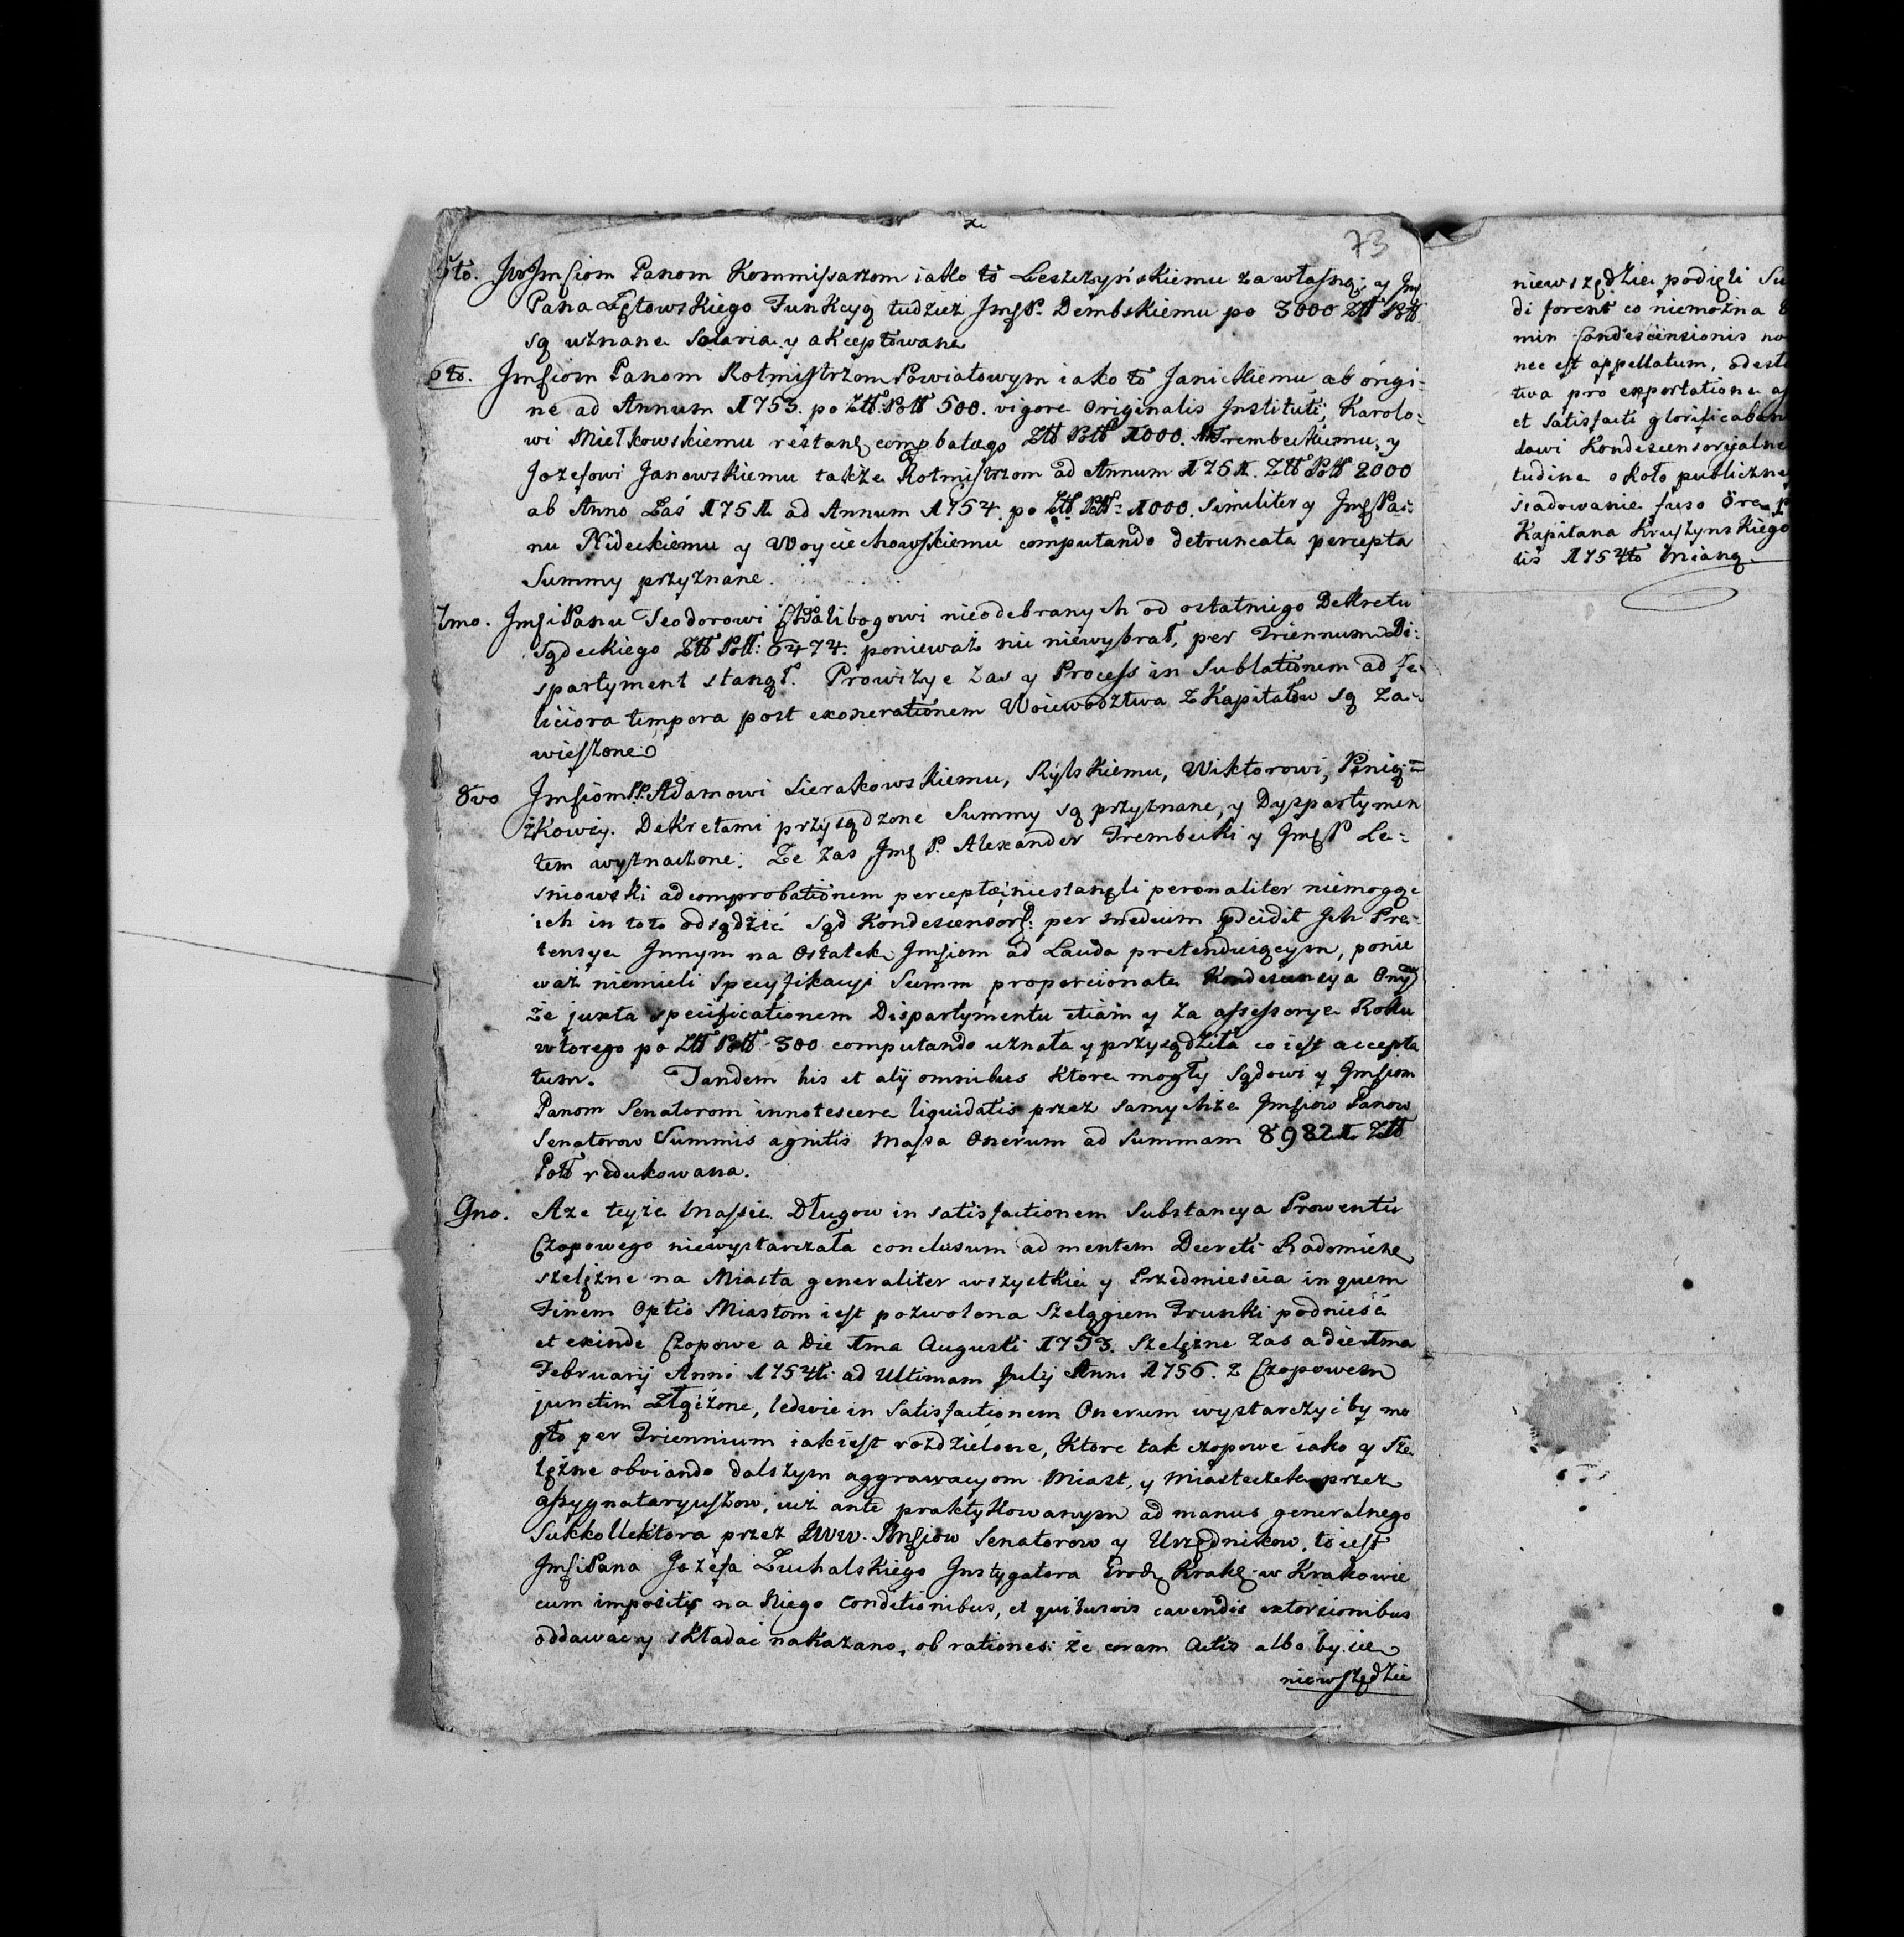 73
5to. JwJmsiom Panom Kommissarzom iako to Leszczyńskiemu za własną y Jmę
Pana Łętowskiego Funkcyą tudziesz JmęP. Dembskiemu po 3000 Złł Poll.
są uznane Salaria y akceptowane
6to. Jmsiom Panom Rotmistrzom Powiatowym iako to Janickiemu ab origi-
ne ad Annum 1753. po Złł. Poll 500. vigore Originalis Instituti, Karolo-
wi Miełkowskiemu Złł Poll 1000. Trembeckiemu, y
Jozefowi Janowskiemu także Rotmistrzom ad Annum 1751. Złł Poll 2000
ab Anno Zaś 1751 ad Annum 1754. po Złł. Poll. 1000. Similiter y JmęPa-
nu Nideckiemu y Woyciechowskiemu computando detruncata percepta
Summy przyznane.
7mo. JmsiPanu Teodorowi Chwalibogowi nieodebranych od ostatniego Dekretu
Sądeckiego Złł Poll: 6474. ponieważ nic niewybrał, per Triennum Di-
spartyment stanął. Prowizye zas y Process in Sublationem ad fe-
liciora tempora post exonerationem Woiewodztwa z Kapitałow są za-
wieszone.
8vo Jmsiom PP. Adamowi Sierakowskiemu, Rylskiemu, Wiktorowi, Pinią-
żkowi. Dekretami przysądzone Summy są przyznane, y Dyspartymen
tem wyznaczone. Ze zas Jmę P. Alexander Trembecki y JmęP Le-
sniowski ad comprobationem perceptæ niestanęli peronaliter niemogąc
ich in toto odsądzić Sąd Kondescensor: per medium Jch Pre-
tensye Jnnym na Ostatek Jmsiom ad Lauda pretenduiącym, ponie
waż niemieli Specyfikacyi Summ proporcionate Kondescencya Onym
że juxta specificationem Dispartymentu etiam y za assessorye Roku
wtorego po Złł Poll 300 computando uznała y przysądziła co iest accepta
tum. Tandem his et alÿ omnibus Ktore mogły Sądowi y Jmsiom
Panom Senatorom innotescere liquidatis przez samychże Jmsiow Panow
Senatorow Summis agnitis Massa Onerum ad Summam 89821 Złł
Poll redukowana.
9no. Aże teyże Massie Długow in satisfactionem Substancya Prowentu
Czopowego niewystarczała conclusum ad mentem Decreti Radomiens
szelężne na Miasta generaliter wszystkie y Przedmiescia in quem
Finem Optio Miastom iest pozwolona Szelągiem Trunki podnieść
et exinde Czopowe a Die 1ma Augusti 1753. Szelężne zas a die 1ma
Februarÿ Anni 1754ti ad Ultimam Julÿ Anni 1756. z Czopowem
junctim złączone, ledwie in Satisfactionem Onerum wystarczyć by mo
gło per Triennium iakiest rozdzielone, Ktore tak czopowe iako y Sze
lężne obviando dalszym aggrawacyom Miast, y Miasteczek przez
assygnataryuszow, iuż ante praktykowanym ad manus generalnego
Sukkollektora przez Jww. Jmsiow Senatorow y Urzędnikow, to iest
JmsiPana Jozefa Zuchalskiego Jnstygatora Grodz Krakę w Krakowie
cum impositis na Niego Conditionibus, et quibusvis cavendis extorsionibus
oddawac y składac nakazano, ob rationes: że coram Actis albo by się
niewszędzie
niewszędzie podięli Su
di forent co niemożna
min Condescensionis no
nec est appellatum, odesł
twa pro exportatione
et Satisfacti glorificaban
dowi Kondescensoryalne
tudine około publiczne
siadowanie fuso Ore
Kapitana Kruszynskiego
tis 1754to